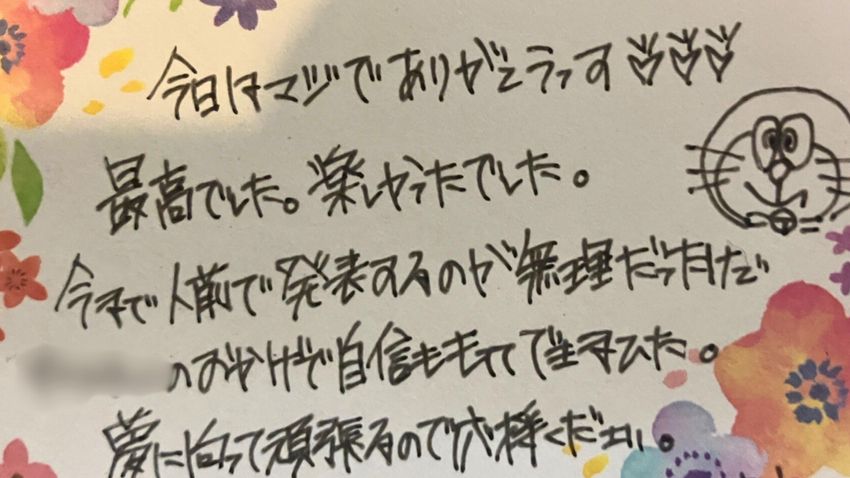 今日はマジでありがとうっす♡♡♡
最高でした。楽しかったでした。
今まで人前で発表するのが無理だったけど
のおかげで自信ももってできました。
夢に向って頑張るので応援ください。